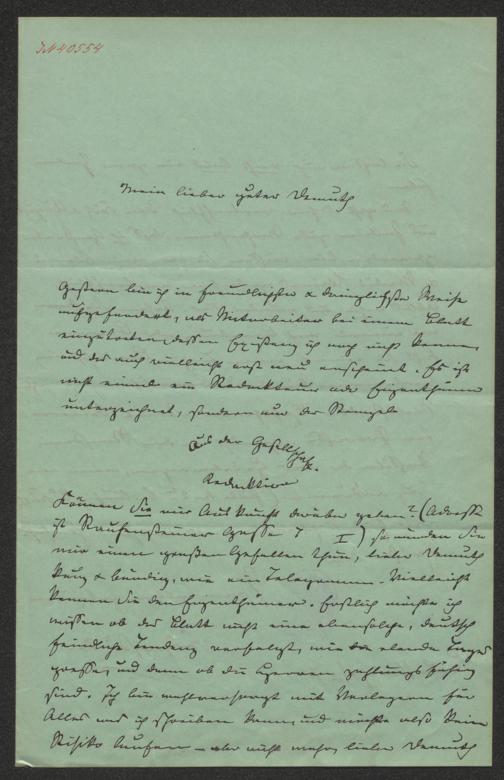 JN 40554
Mein lieber guter Demuth
Gestern bin ich in freundlichster & dringlichster Weise
aufgefordert, als Mitarbeiter bei einem Blatt
einzutreten, dessen Existenz ich noch nicht kenne,
und das auch vielleicht erst neu erscheint. Es ist
nicht einmal ein Redakteur oder Eigenthümer
unterzeichnet, sondern nur der Stempel
Aus der Gesellschaft.
Redaktion
Können Sie mir Auskunft darüber geben? (Adresse
ist Rauhensteiner Gasse 7 I) so würden Sie
mir einen großen Gefallen thun, lieber Demuth
kurz & bündig, wie ein Telegramm. Vielleicht
kennen Sie den Eigenthümer. Erstlich möchte ich
wissen ob das Blatt nicht eine ebensolche, deutsch
feindliche Tendenz verfolgt, wie die elende Tages
presse, und dann ob die Herren zahlungsfähig
sind. Ich bin wohlversorgt mit Verlegern für
Alles was ich schreiben kann, und möchte also kein
Risiko laufen – aber nicht mehr, lieber Demuth